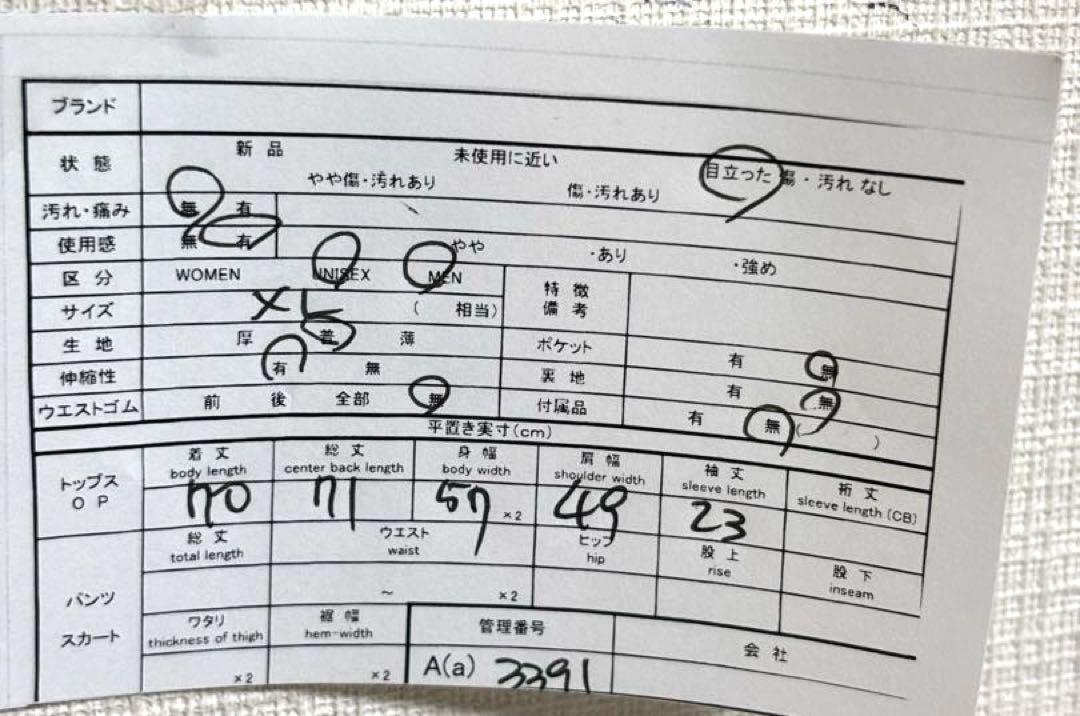 ブランド
状態 新品 未使用に近い 目立った傷・汚れなし
やや傷・汚れあり 傷・汚れあり
汚れ・痛み 無 有
使用感 無 有 やや ・あり ・強め
区分 WOMEN UNISEX MEN 特徴備考
サイズ XL ( 相当)
生地 厚 普 薄 ポケット 有 無
伸縮性 有 無 裏地 有 無
ウエストゴム 前 後 全部 無 付属品 有 無 ( )
平置き実寸(cm)
トップス OP 着丈 総丈 身幅 肩幅 袖丈 裄丈
body length center back length body width shoulder width sleeve length sleeve length (CB)
70 71 57 ×2 49 23
パンツ スカート 総丈 ウエスト ヒップ 股上 股下
total length waist hip rise inseam
~ ×2
ワタリ 裾幅 管理番号 会社
thickness of thigh hem-width
×2 ×2 A(a) 3391